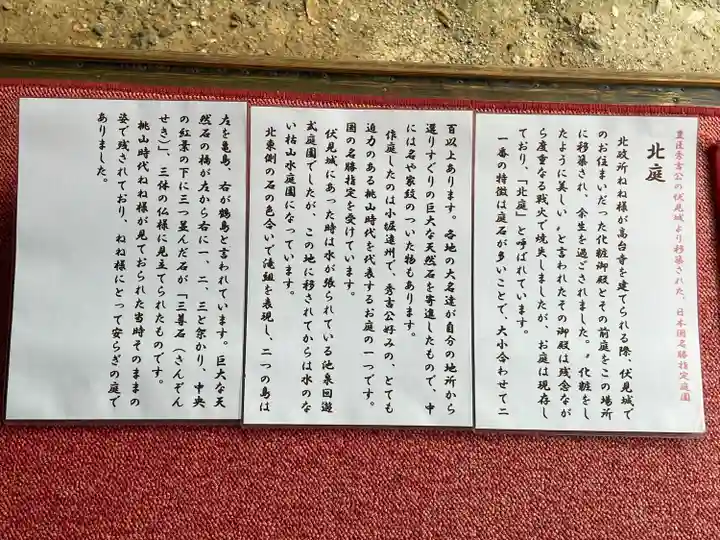 豊臣秀吉公の伏見城より移築された、日本国名勝指定庭園
北庭
北政所ねね様が高台寺を建てられる際、伏見城で
のお住まいだった化粧御殿とその前庭をこの場所
に移築され、余生を過ごされました。〝化粧をし
たように美しい〟と言われたその御殿は残念なが
ら度重なる戦火で焼失しましたが、お庭は現存し
ており、「北庭」と呼ばれています。
一番の特徴は庭石が多いことで、大小合わせて二
百以上あります。各地の大名達が自分の地所から
選りすぐりの巨大な天然石を寄進したもので、中
には名や家紋のついた物もあります。
作庭したのは小堀遠州で、秀吉公好みの、とても
迫力のある桃山時代を代表するお庭の一つです。
国の名勝指定を受けています。
伏見城にあった時は水が張られている池泉回遊
式庭園でしたが、この地に移されてからは水のな
い枯山水庭園になっています。
北東側の石の色合いで滝組を表現し、二つの島は
左を亀島、右が鶴島と言われています。巨大な天
然石の橋が左から右に一、二、三と架かり、中央
の紅景の下に三つ並んだ石が「三尊石（さんぞん
せき）」、三体の仏様に見立てられたものです。
桃山時代ねね様が見ておられた当時そのままの
姿で残されており、ねね様にとって安らぎの庭で
ありました。